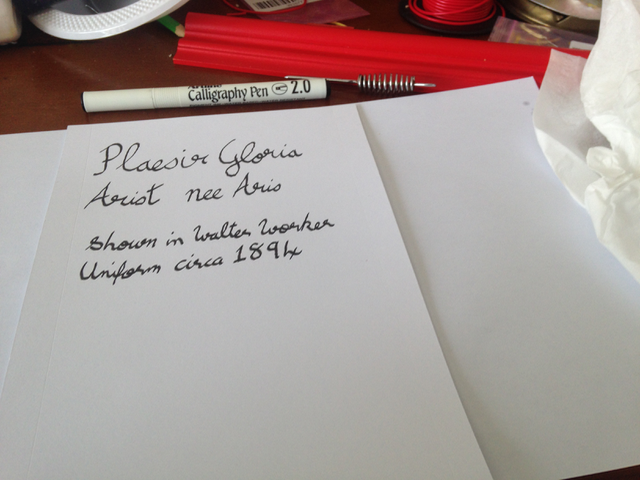 Calligraphy Pen 2.0
Plaesir Gloria
Arist nee Aris
Shown in Walter Worker
Uniform circa 1894